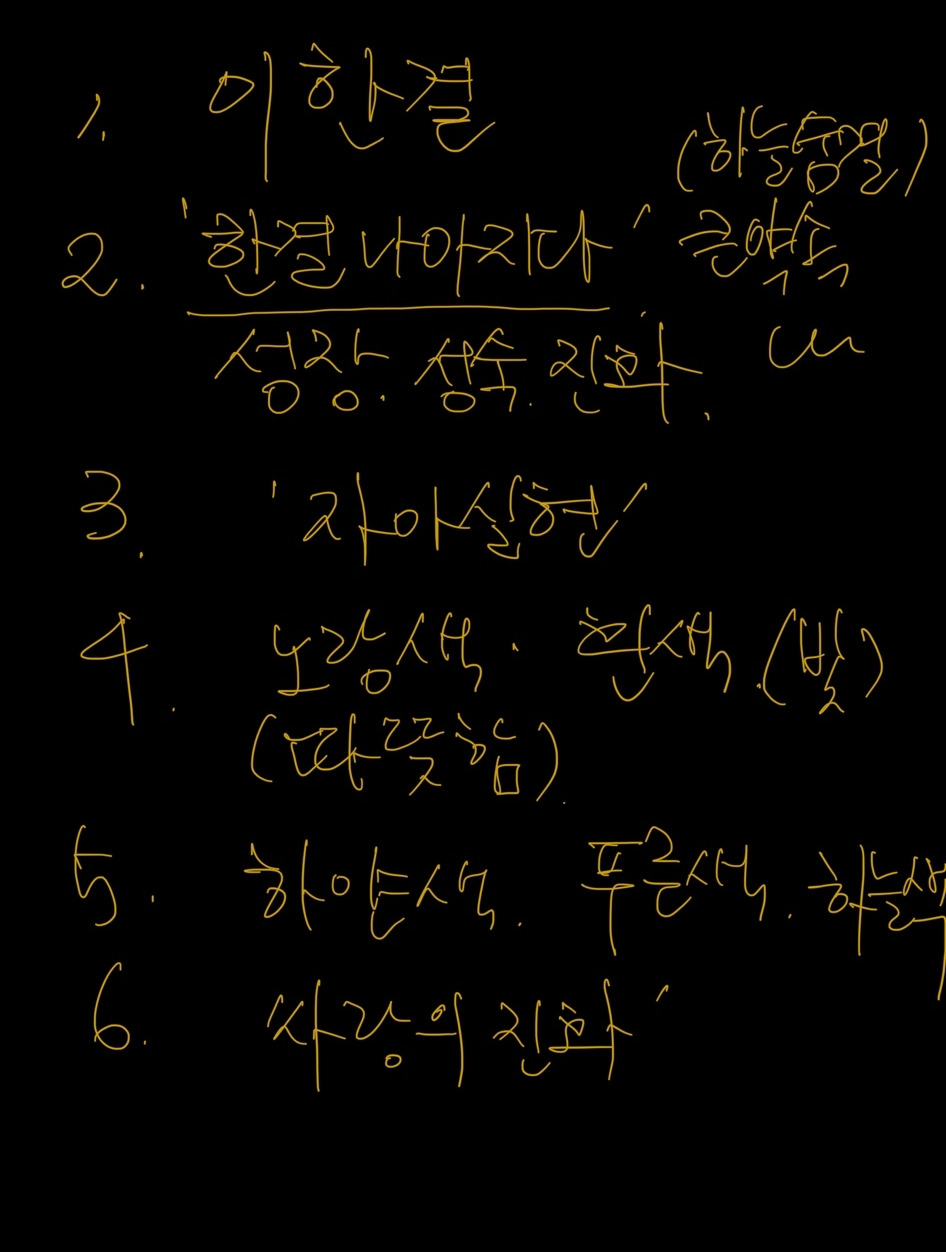 1. 이한결
2. '한결 나아지다'
성장. 성숙. 진화.
(하늘숨결)
큰약속
3. '자아실현'
4. 노랑색. 흰색. (빛)
(따뜻함).
5. 하얀색. 푸른색. 하늘색
6. 사랑의 진화'